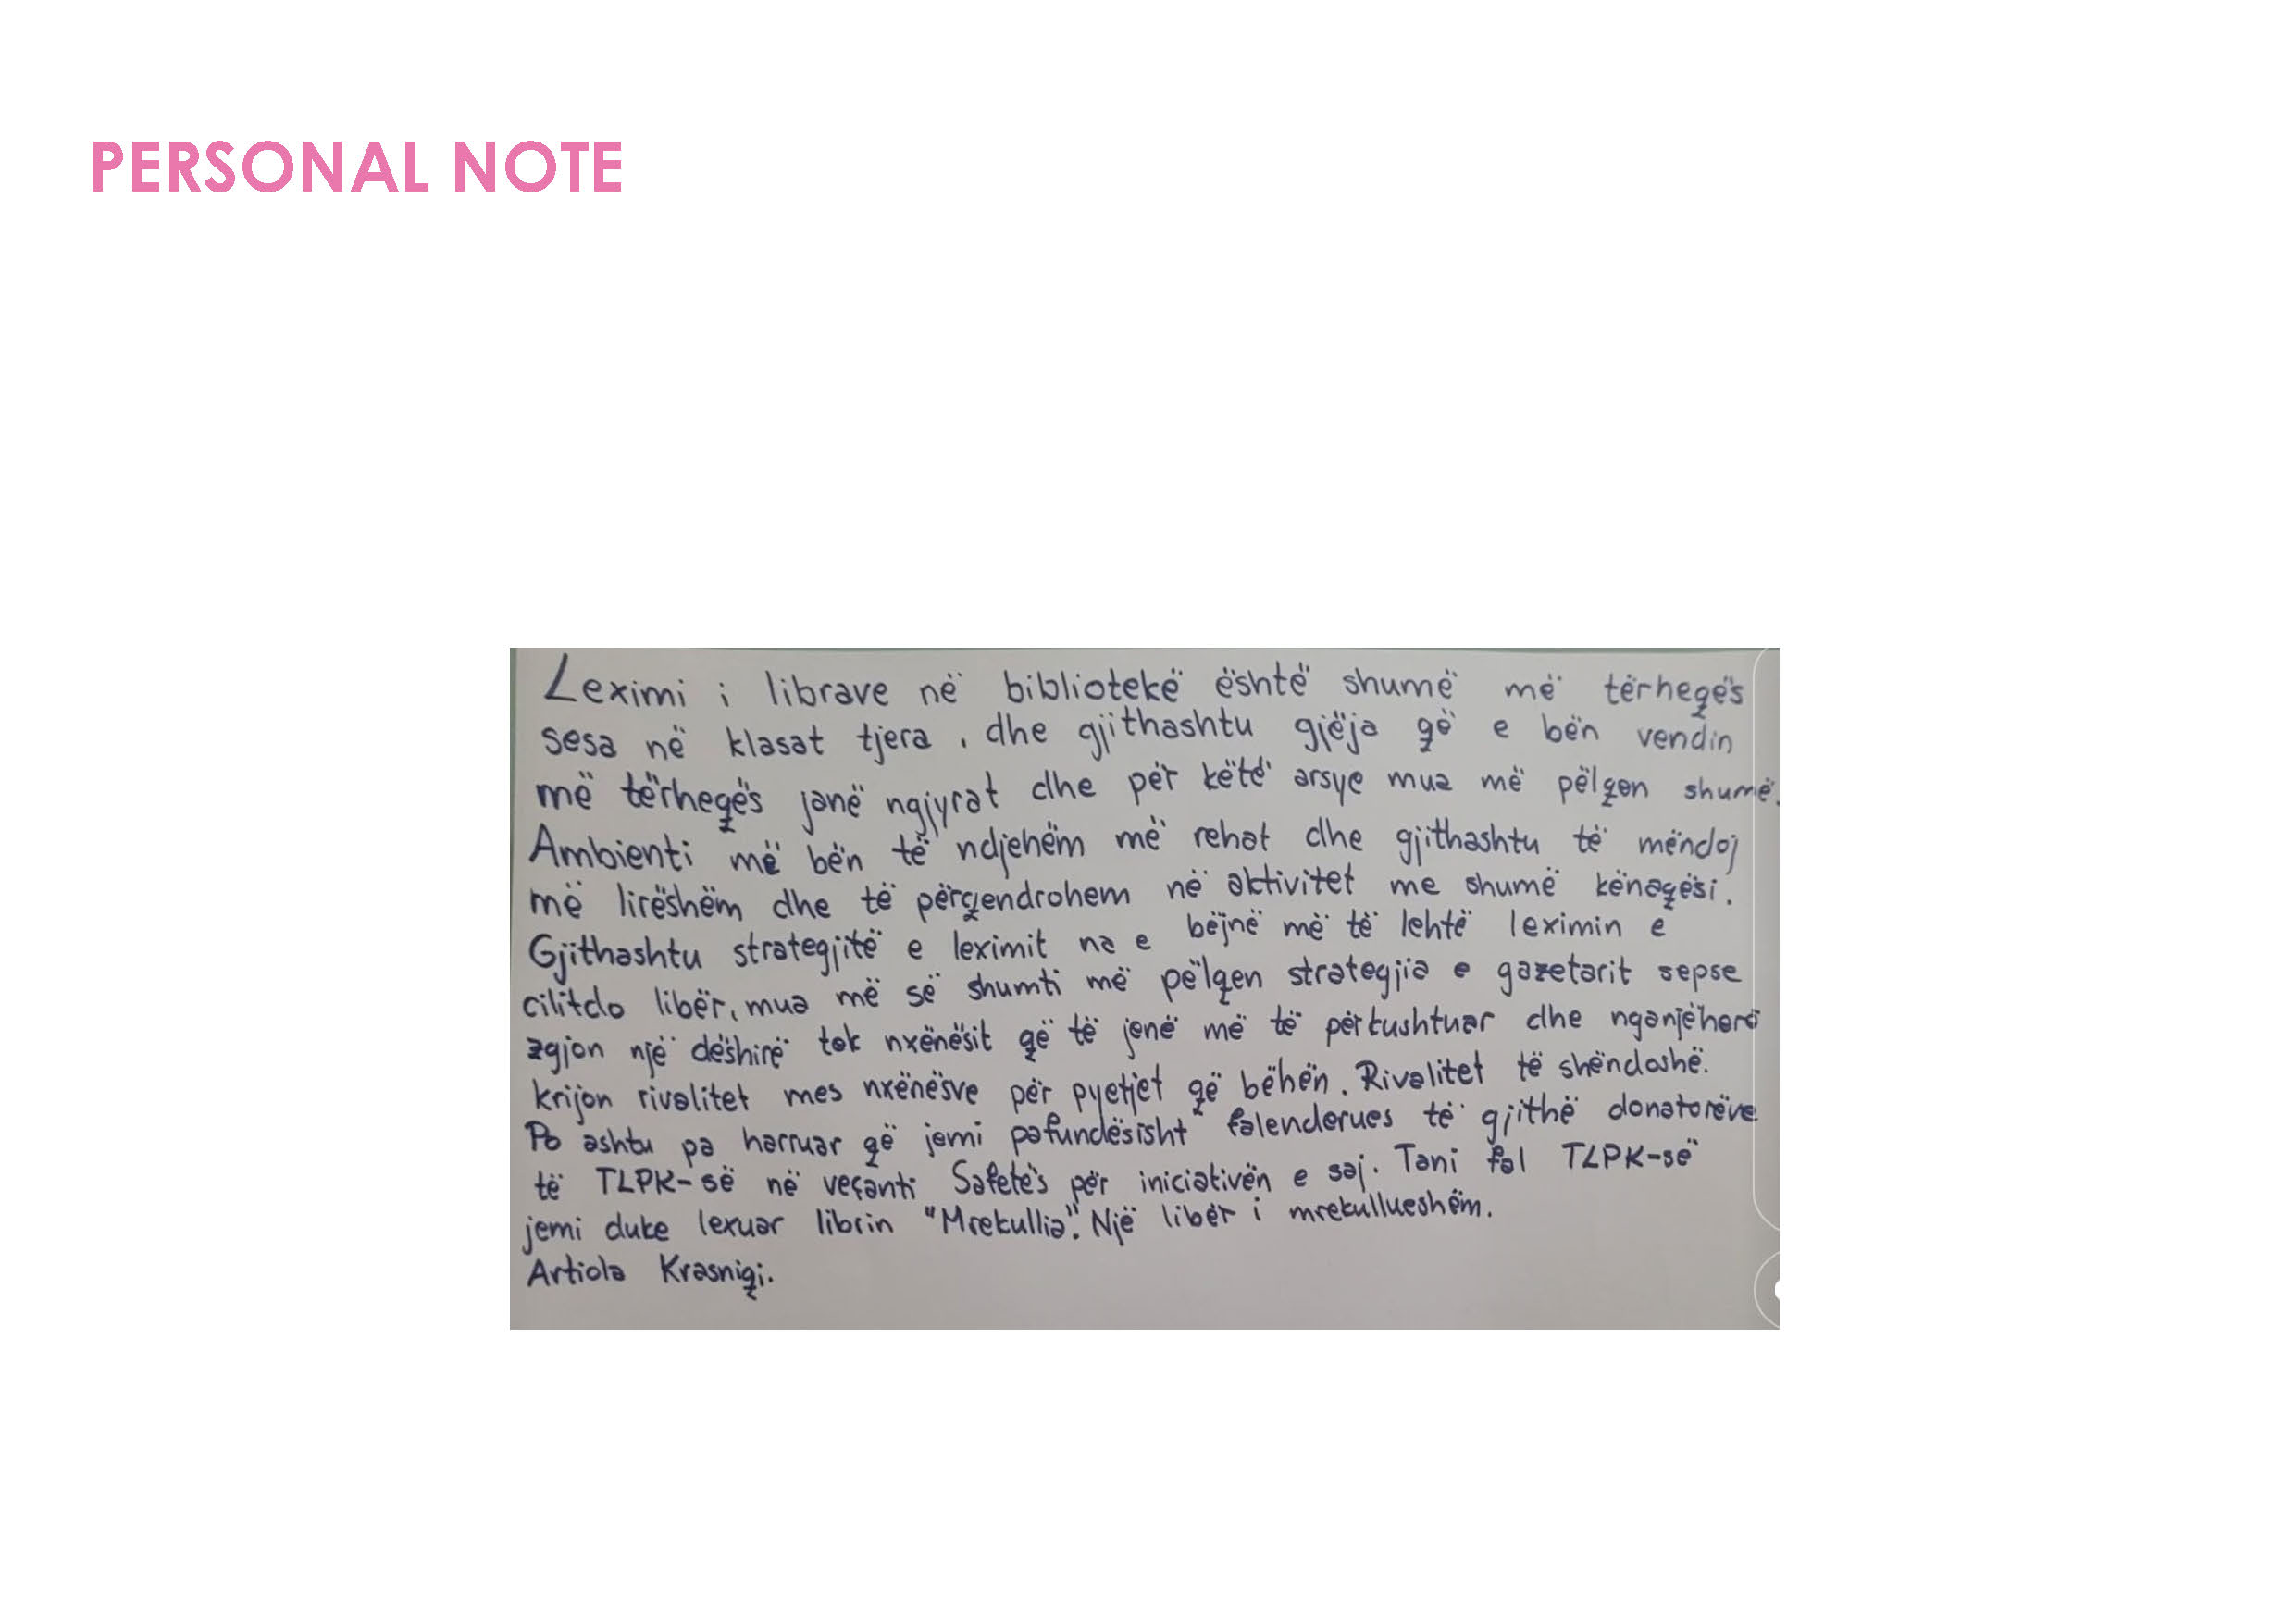 PERSONAL NOTE
Leximi i librave në bibliotekë është shumë më tërheqës
sesa në klasat tjera, dhe gjithashtu gjëja që e bën vendin
më tërheqës janë ngjyrat dhe për këtë arsye mua më pëlqen shumë.
Ambienti më bën të ndjehëm më rehat dhe gjithashtu të mëndoj
më lirëshëm dhe të përqendrohem në aktivitet me shumë kënaqësi.
Gjithashtu strategjitë e leximit na e bëjnë më të lehtë leximin e
cilitdo libër, mua më së shumti më pëlqen strategjia e gazetarit sepse
zgjon një dëshirë tek nxënësit që të jenë më të përkushtuar dhe nganjëherë
krijon rivalitet mes nxënësve për pyetjet që bëhën. Rivalitet të shëndoshë.
Po ashtu pa harruar që jemi pafundësisht falenderues të gjithë donatorëve
të TLPK-së në veçanti Safetës për iniciativën e saj. Tani fal TLPK-së
jemi duke lexuar librin "Mrekullia". Një libër i mrekullueshëm.
Artiola Krasniqi.